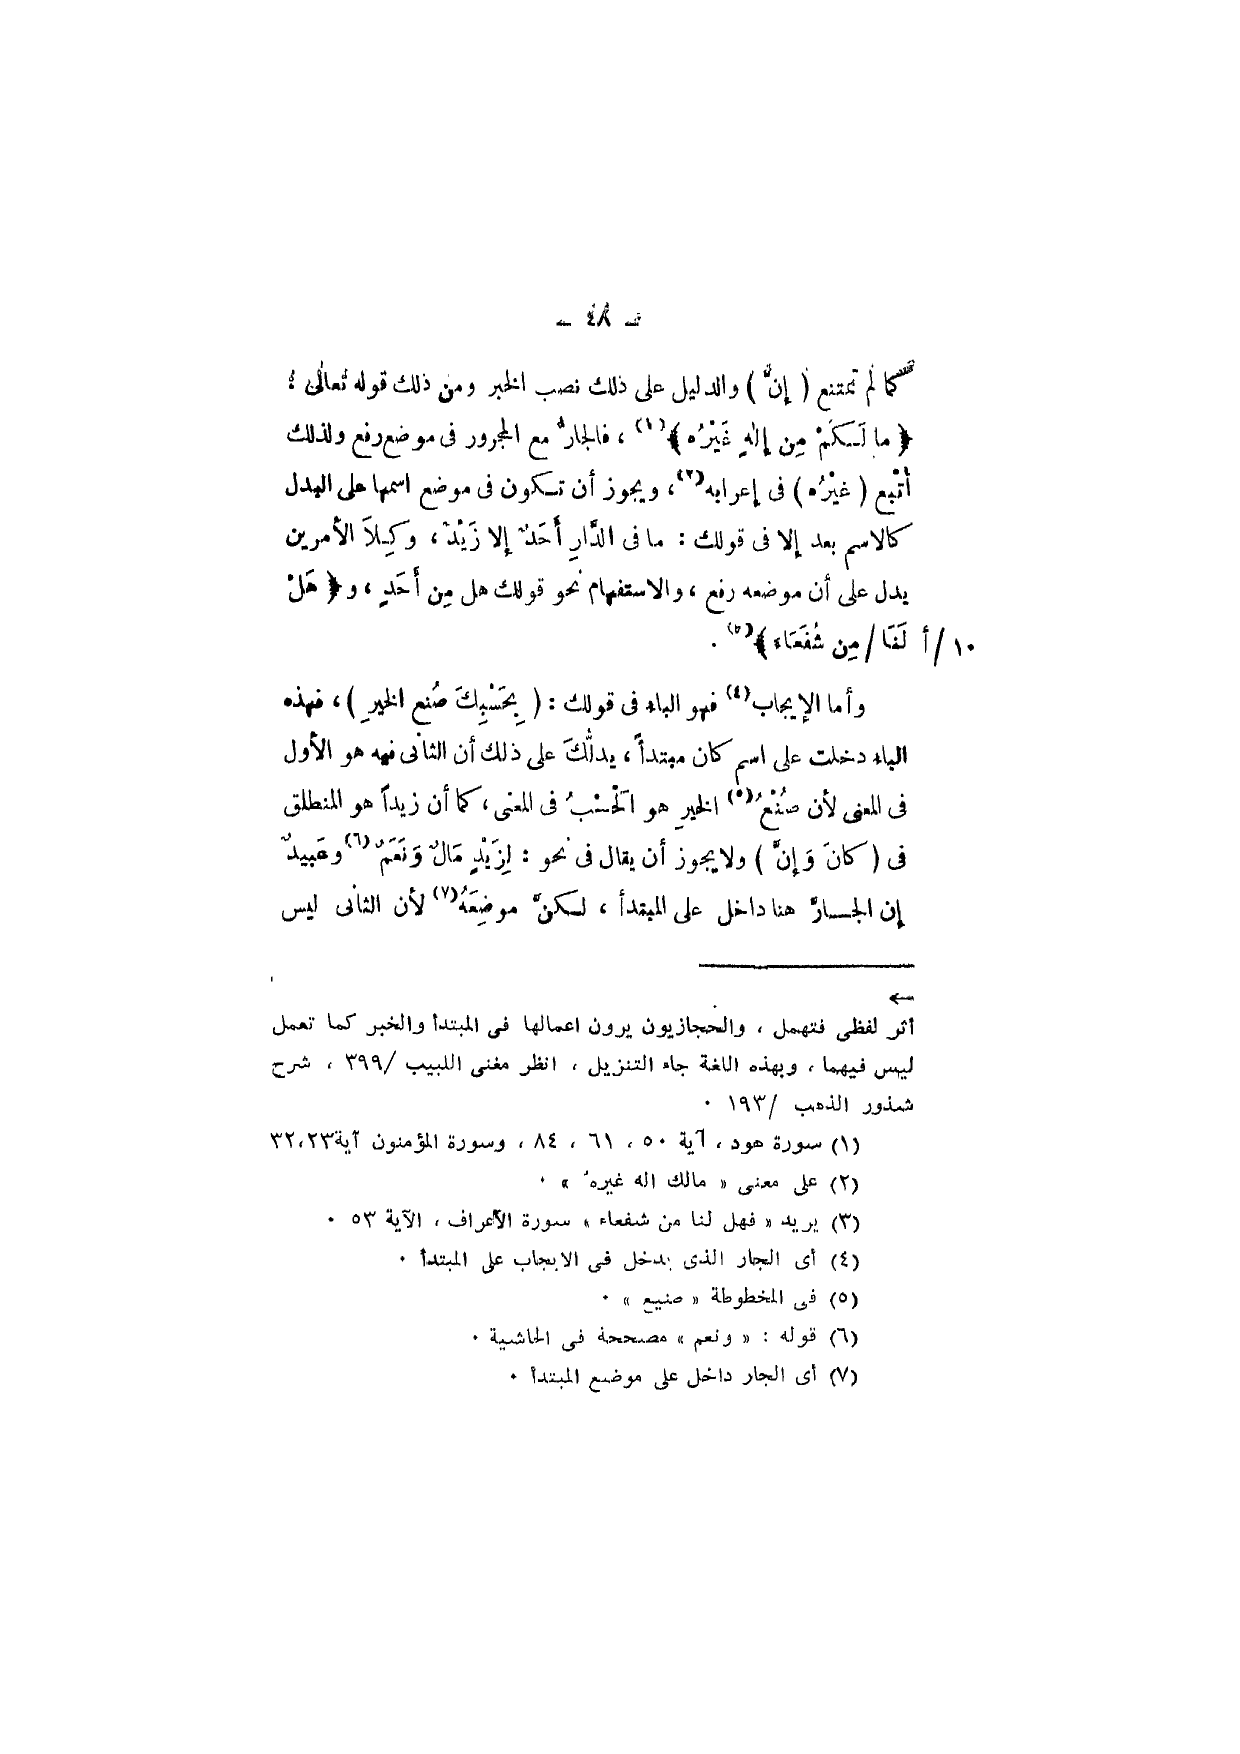 ـ ٤٨ ـ
كما لم تمتنع ( إنَّ ) والدليل على ذلك نصب الخبر ومن ذلك قوله تعالى :
﴿ ما لَـكَمْ مِن إلٰهٍ غَيْرُه ﴾(١) ، فالجارُّ مع المجرور فى موضع رفع ولذلك
أُتْبع ( غيْرُه ) فى إعرابه(٢)، ويجوز أن تـكون فى موضع اسمها على البدل
كالاسم بعد إلا فى قولك : ما فى الدَّارِ أَحَدٌ إلا زَيْدٌ ، وكِـلاَ الأمرين
يدل على أن موضعه رفع ، والاستفهام نحو قولك هل مِن أَحَدٍ ، و ﴿ هَلْ
١٠/أ لَنَا / مِن شُفَعَاء ﴾(٣) .
وأما الإيجاب(٤) فهو الباء فى قولك : ( بِحَسْبِكَ صُنع الخيرِ ) ، فهذه
الباء دخلت على اسم كان مبتدأً ، يدلُّكَ على ذلك أن الثانى فيه هو الأول
فى المعنى لأن صُنْعُ(٥) الخيرِ هو الَحْسْبُ فى المعنى ، كما أن زيداً هو المنطلق
فى ( كانَ وَإنَّ ) ولا يجوز أن يقال فى نحو : لِزَيْدٍ مَالٌ وَنَعَمٌ(٦) وعَبيدٌ
إن الجـــارَّ هنا داخل على المبتدأ ، لـكنَّ موضِعَهُ(٧) لأن الثانى ليس
←
أثر لفظى فتهمل ، والحجازيون يرون اعمالها فى المبتدأ والخبر كما تعمل
ليس فيهما ، وبهذه اللغة جاء التنزيل ، انظر مغنى اللبيب /٣٩٩ ، شرح
شذور الذهب /١٩٣ ٠
(١) سورة هود ، آية ٥٠ ، ٦١ ، ٨٤ ، وسورة المؤمنون آية٣٢،٢٣
(٢) على معنى « مالك اله غيرهُ » ٠
(٣) يريد « فهل لنا من شفعاء » سورة الأعراف ، الآية ٥٣ ٠
(٤) أى الجار الذى يدخل فى الايجاب على المبتدأ ٠
(٥) فى المخطوطة « صنيع » ٠
(٦) قوله : « ونعم » مصححة فى الحاشية ٠
(٧) أى الجار داخل على موضع المبتدأ ٠